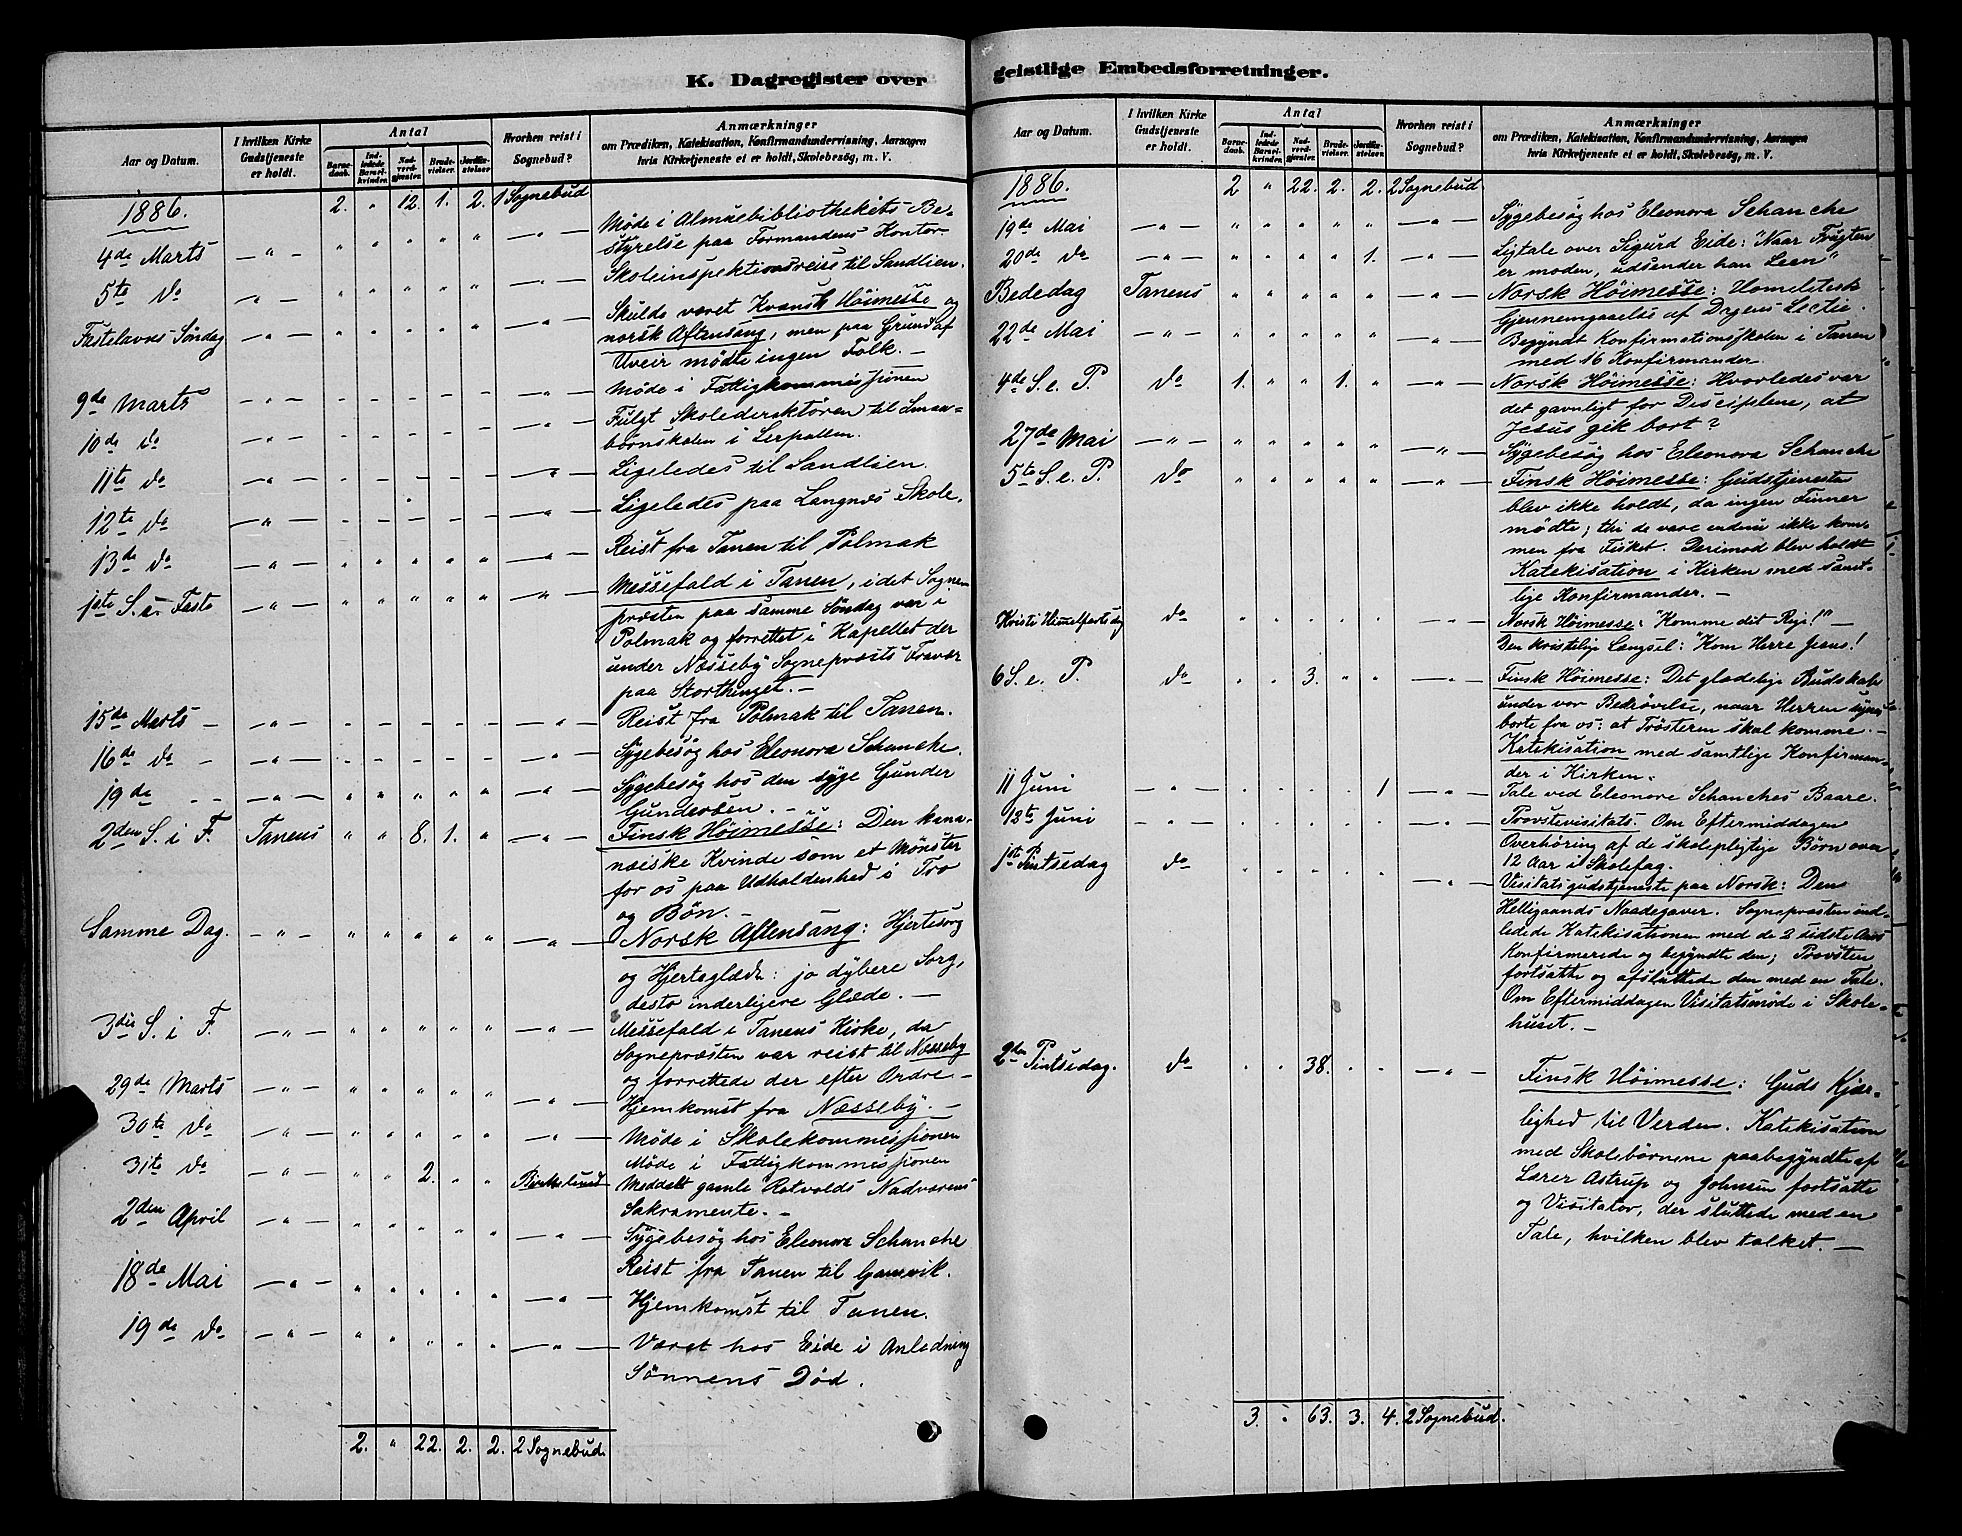 K. Dagregister over
Aar og Datum.
I hvilken Kirke Gudstjeneste er holdt.
Antal
Barnedaab.
Indledede Barselkvinder.
Nadverdgjester.
Brudevielser.
Jordfæstelser.
Hvorhen reist i Sognebud?
Anmærkninger
om Prædiken, Katekisation, Konfirmandundervisning, Aarsagen
hvis Kirketjeneste ei er holdt, Skolebesøg, m. V.
1886. 2. " 12. 1. 2. 1 Sognebud
4de Marts — " — Møde i Almuebibliothekets Be-
styrelse paa Formandens Kontor.
5te do — " — Skoleinspektionsreise til Sandlien.
Fastelavns Søndag — " — Skulde været Kvænsk Høimesse og
norsk Aftensang, men paa Grund af
Uveir mødte ingen Folk. —
9de Marts — " — Møde i Fattigkommissionen
10de do — " — Fulgt Skoledirektøren til Smaa-
børnskolen i Lerpollen.
11te do — " — Ligeledes til Sandlien.
12te do — " — Ligeledes paa Langnes Skole.
13de do — " — Reist fra Tanen til Polmak
1ste S. i Faste — " — Messefald i Tanen, idet Sogne-
præsten paa samme Søndag var i
Polmak og forrettet i Kapellet der
under Næsseby Sognepræsts Fravær
paa Storthinget. —
15de Marts — " — Reist fra Polmak til Tanen.
16de do — " — Sygebesøg hos Eleonora Schanche.
19de — " — Sygebesøg hos den syge Gunder
Gundersen. —
2den S. i F. Tanens " " 8. 1. " — " — Finsk Høimesse: Den kana-
næiske Kvinde som et Mønster
for os paa Udholdenhed i Tro
og Bøn. —
Samme Dag. — " — Norsk Aftensang: Hjertesorg
og Hjerteglæde: jo dybere Sorg,
desto inderligere Glæde. —
3die S. i F. — " — Messefald i Tanens Kirke, da
Sognepræsten var reist til Næsseby
og forrettede der efter Ordre —
29de Marts — " — Hjemkomst fra Næsseby. —
30te do — " — Møde i Skolekommissionen
31te do — " — Møde i Fattigkommissionen
2. Meddelt gamle Rotvolds Nadverens
Sakramente. —
2den April — " — Sygebesøg hos Eleonora Schanche
Reist fra Tanen til Gamvik.
18de Mai — " — Hjemkomst til Tanen.
19de do — " — Været hos Eide i Anledning
Sønnens Død.
2. " 22. 2. 2. 2 Sognebud.
geistlige Embedsforretninger.
Aar og Datum.
I hvilken Kirke Gudstjeneste er holdt.
Antal
Barnedaab.
Indledede Barselkvinder.
Nadverdgjester.
Brudevielser.
Jordfæstelser.
Hvorhen reist i Sognebud?
Anmærkninger
om Prædiken, Katekisation, Konfirmandundervisning, Aarsagen
hvis Kirketjeneste ei er holdt, Skolebesøg, m. V.
1886. 2 " 22. 2. 2. 2 Sognebud.
19de Mai — " — Sygebesøg hos Eleonora Schanche
20de do — " — 1. Ligtale over Sigurd Eide: "Naar Frugten
er moden, udsender han Leen"
Bededag Tanens Norsk Høimesse: Homiletisk
Gjennemgaaelse af Dagens Lectie.
22de Mai — " — Begyndt Konfirmationsskolen i Tanen
med 16 Konfirmander.
4de S. e. P. do 1. " " 1. " — " — Norsk Høimesse: Hvorledes var
det gavnligt for Disciplene, at
Jesus gik bort?
27de Mai — " — Sygebesøg hos Eleonora Schanche
5te S. e. P. do Finsk Høimesse: Gudstjenesten
blev ikke holdt, da ingen Finner
mødte; thi de vare endnu ikke kom-
men fra Fisket. Derimod blev holdt
Katekisation i Kirken med samt-
lige Konfirmander. —
Kristi Himmelfartsdag do Norsk Høimesse: "Komme dit Rige!" —
Den kristelige Længsel: "Kom Herre Jesus!
6 S. e. P. do 3. Finsk Høimesse: Det glædelige Budskab
under vor Bedrøvelse, naar Herren synes
borte fra os: at Trøsteren skal komme. —
Katekisation med samtlige Konfirman-
der i Kirken.
11 Juni — " — 1 Tale ved Eleonore Schanches Baare.
12te Juni — " — Provstevisitats. Om Eftermiddagen
Overhøring af de skolepligtige Børn over
12 Aar i Skolefag.
1ste Pintsedag do Visitatsgudstjeneste paa Norsk: Den
Helligaands Naadegaver. Sognepræsten ind-
ledede Katekisationen med de 2 sidste Aars
Konfirmerede og begyndte den; Provsten
fortsatte og afsluttede den med en Tale.
Om Eftermiddagen Visitatsmøde i Skole-
huset. —
2den Pintsedag. do 38. Finsk Høimesse: Guds Kjær-
lighed til Verden. Katekisation
med Skolebørnene paabegyndte af
Lærer Astrup og Johnsen fortsatte
og Visitator, der sluttede med en
Tale, hvilken blev tolket. —
3. " 63. 3. 4. 2 Sognebud.